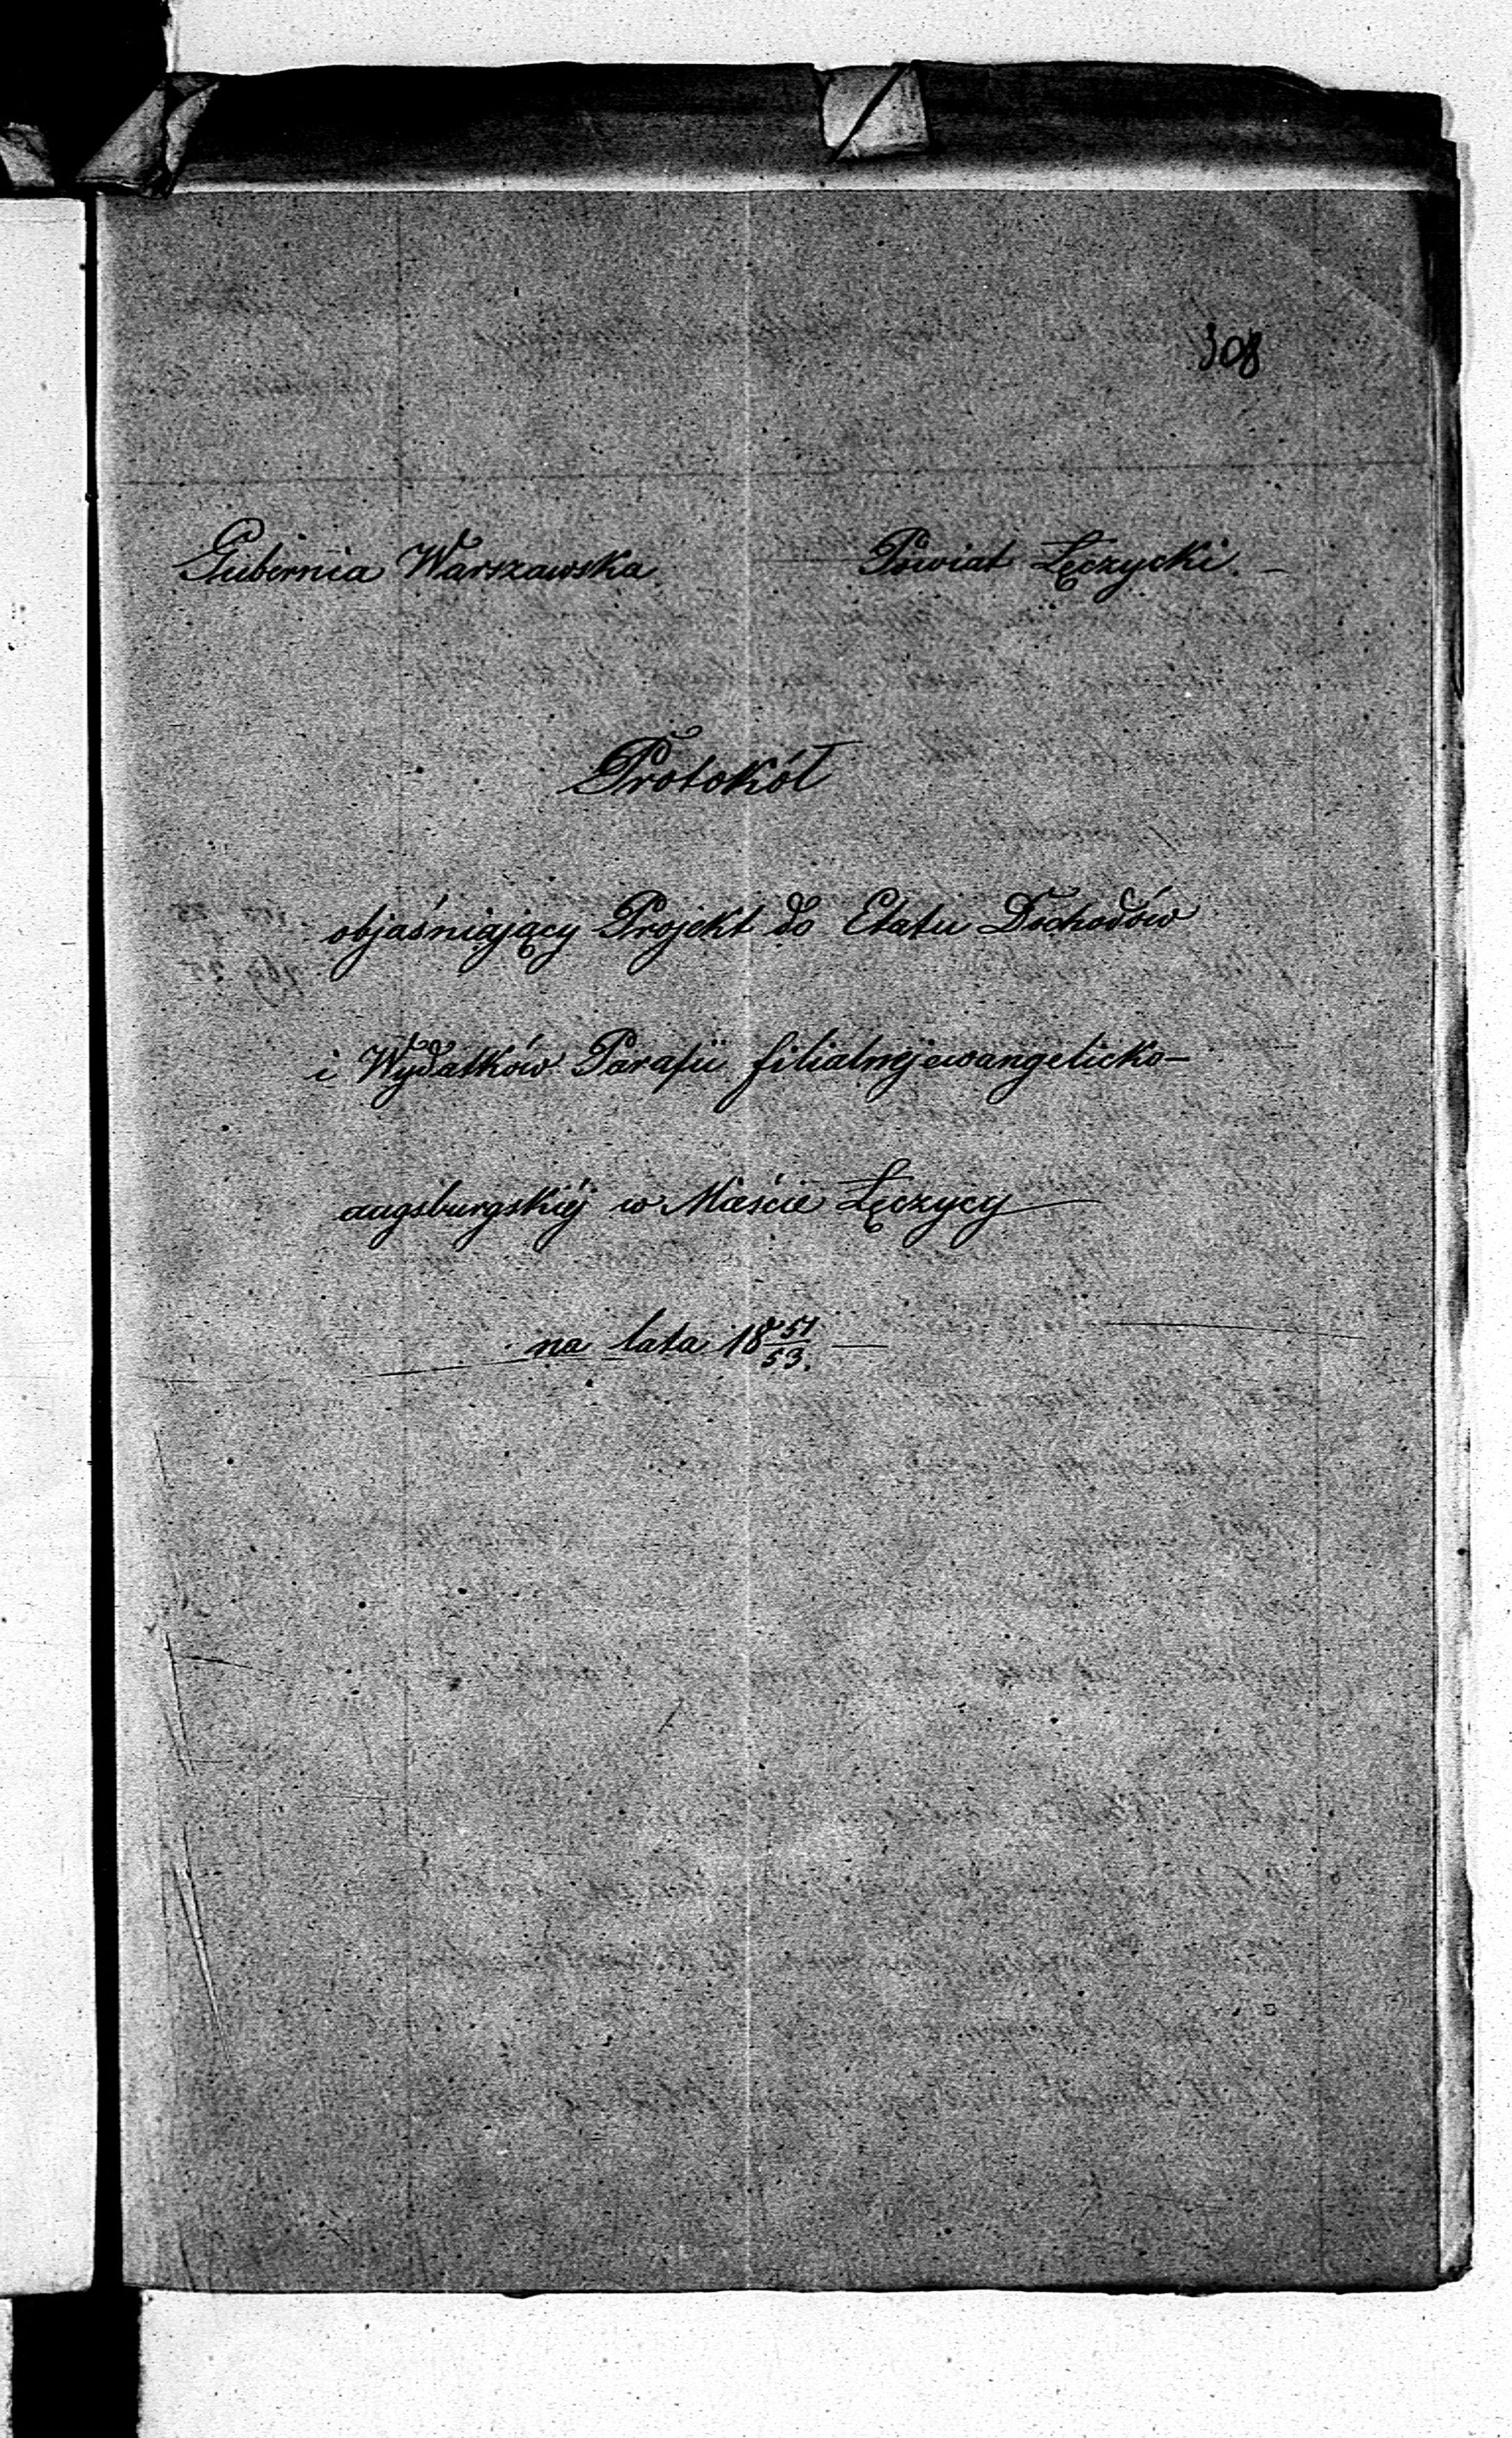 308
Gubernia Warszawska. Powiat Łęczycki. –
Protokół
objaśniający Projekt do Etatu Dochodów
i Wydatków Parafii filialnej ewangelicko-
augsburgskiéj w Mieście Łęczycy
na lata 18 51/53. –